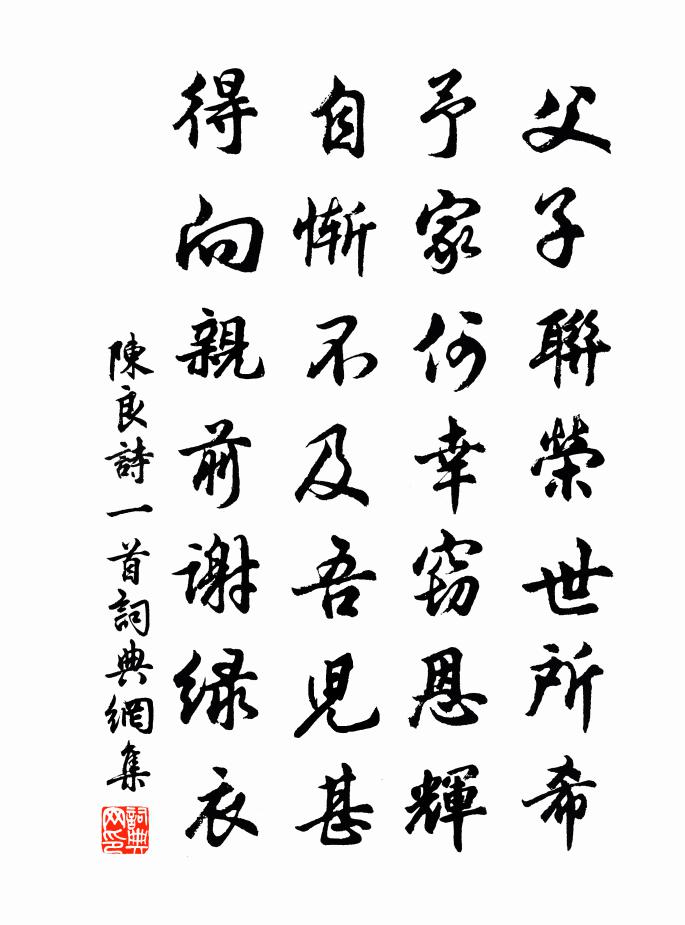 父子聯榮世所希
予家何幸窃恩輝
自慚不及吾児甚
得向親前谢緑衣
陳良詩一首詞典網集
詞典网印